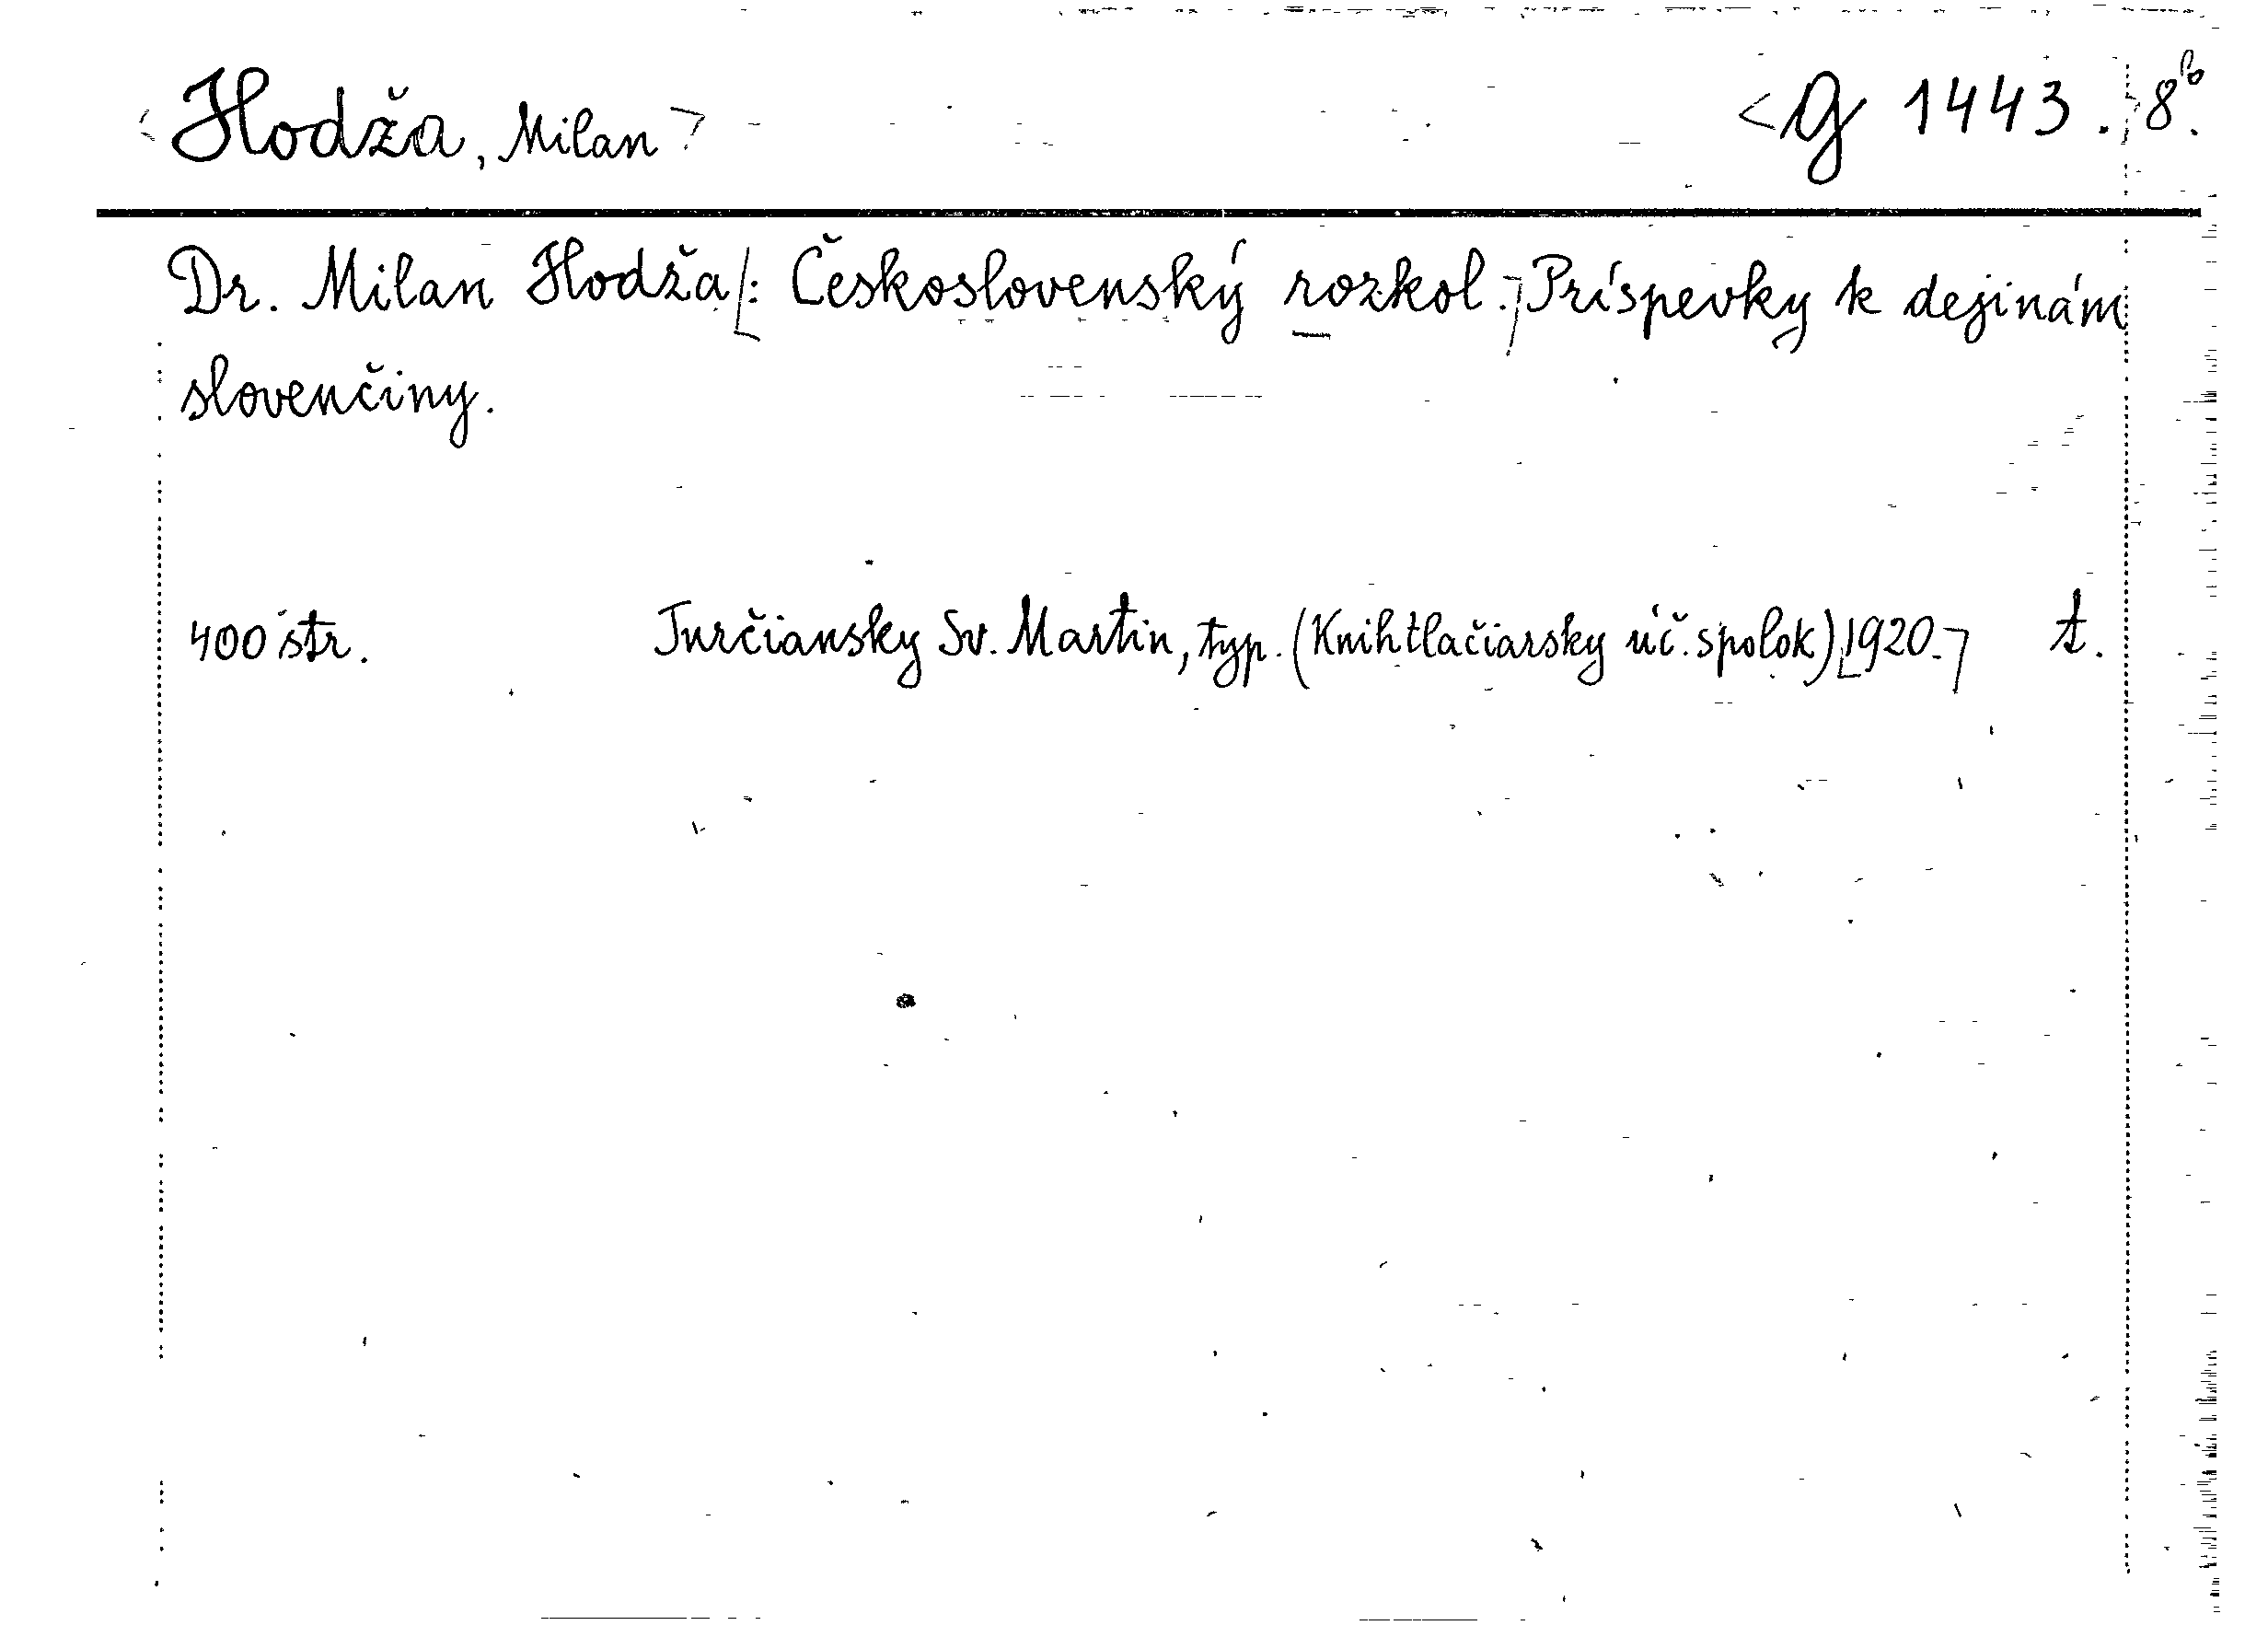 <Hodža, Milan> <G 1443.> 8°.
Dr. Milan Hodža[: Československý rozkol.] Príspevky k dejinám
slovenčiny.
400 str. Turčiansky Sv. Martin, typ. (Knihtlačiarsky úč. spolok) [1920.] t.